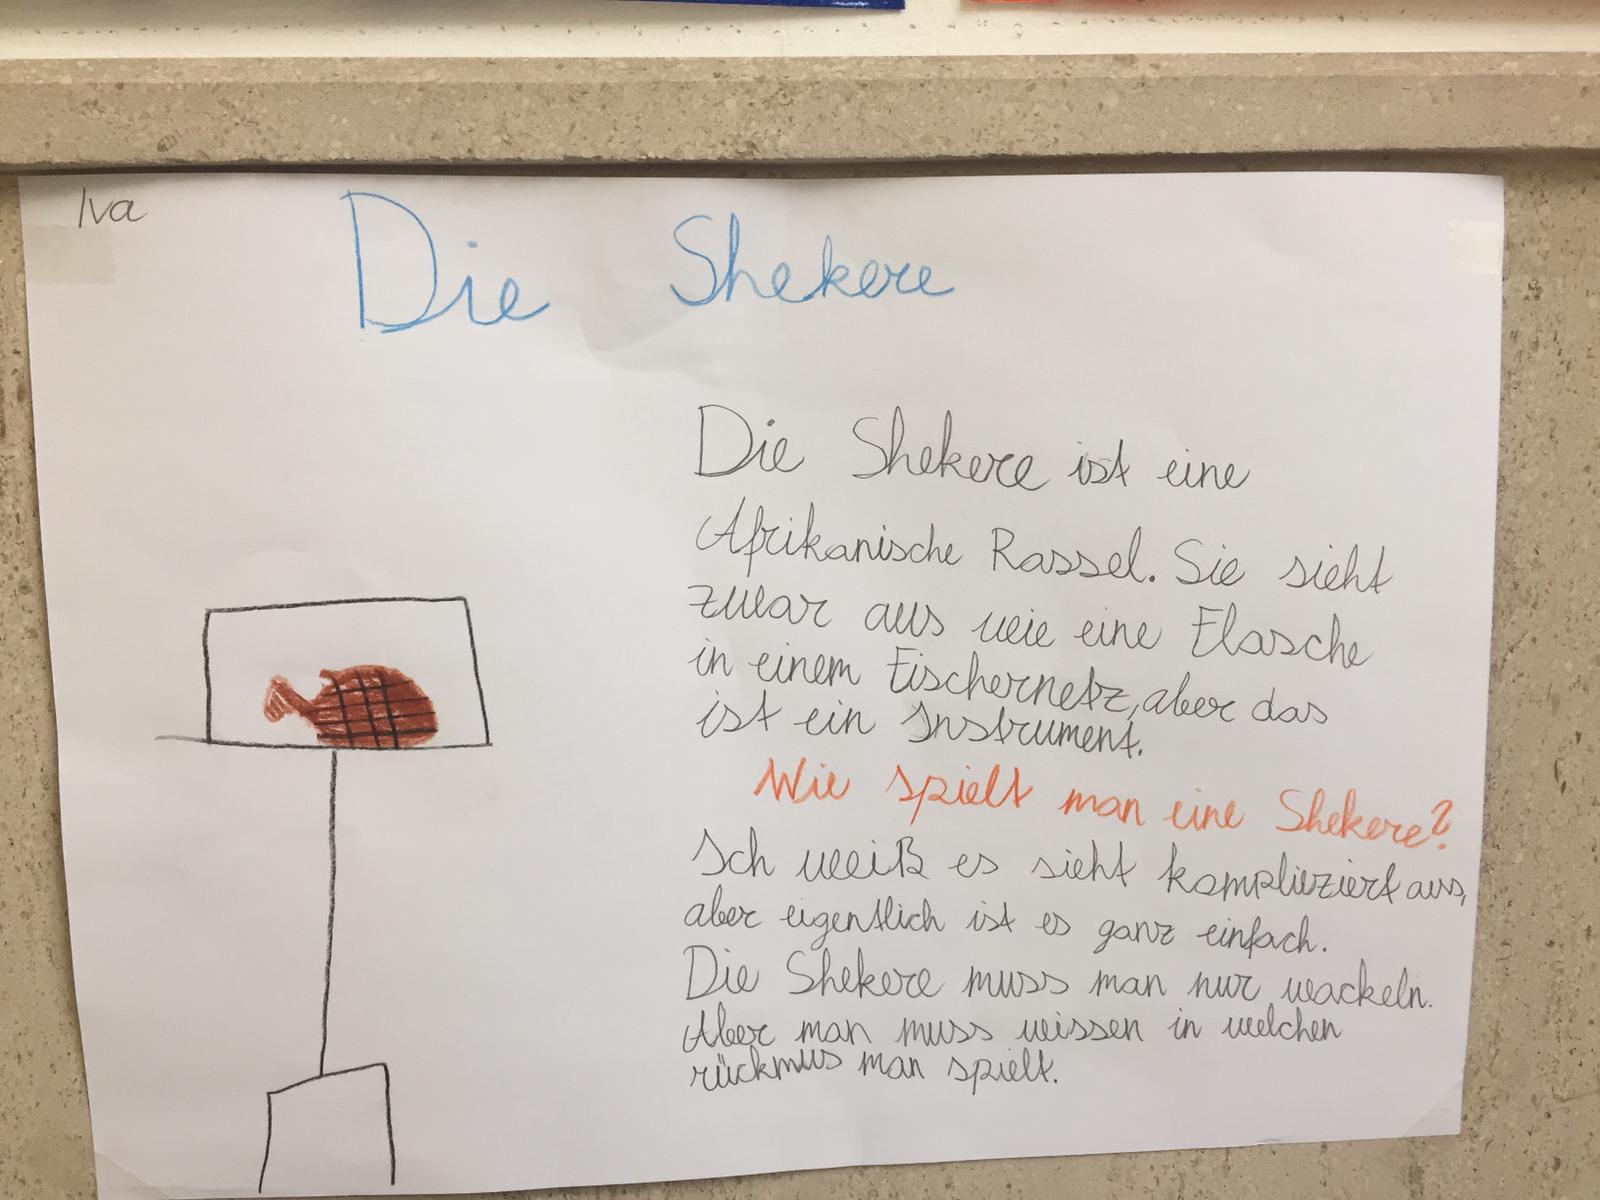 Iva
Die Shekere
Die Shekere ist eine
Afrikanische Rassel. Sie sieht
zwar aus wie eine Flasche
in einem Fischernetz, aber das
ist ein Instrument.
Wie spielt man eine Shekere?
Ich weiß es sieht komplieziert aus,
aber eigentlich ist es ganz einfach.
Die Shekere muss man nur wackeln.
Aber man muss wissen in welchen
rückmus man spielt.